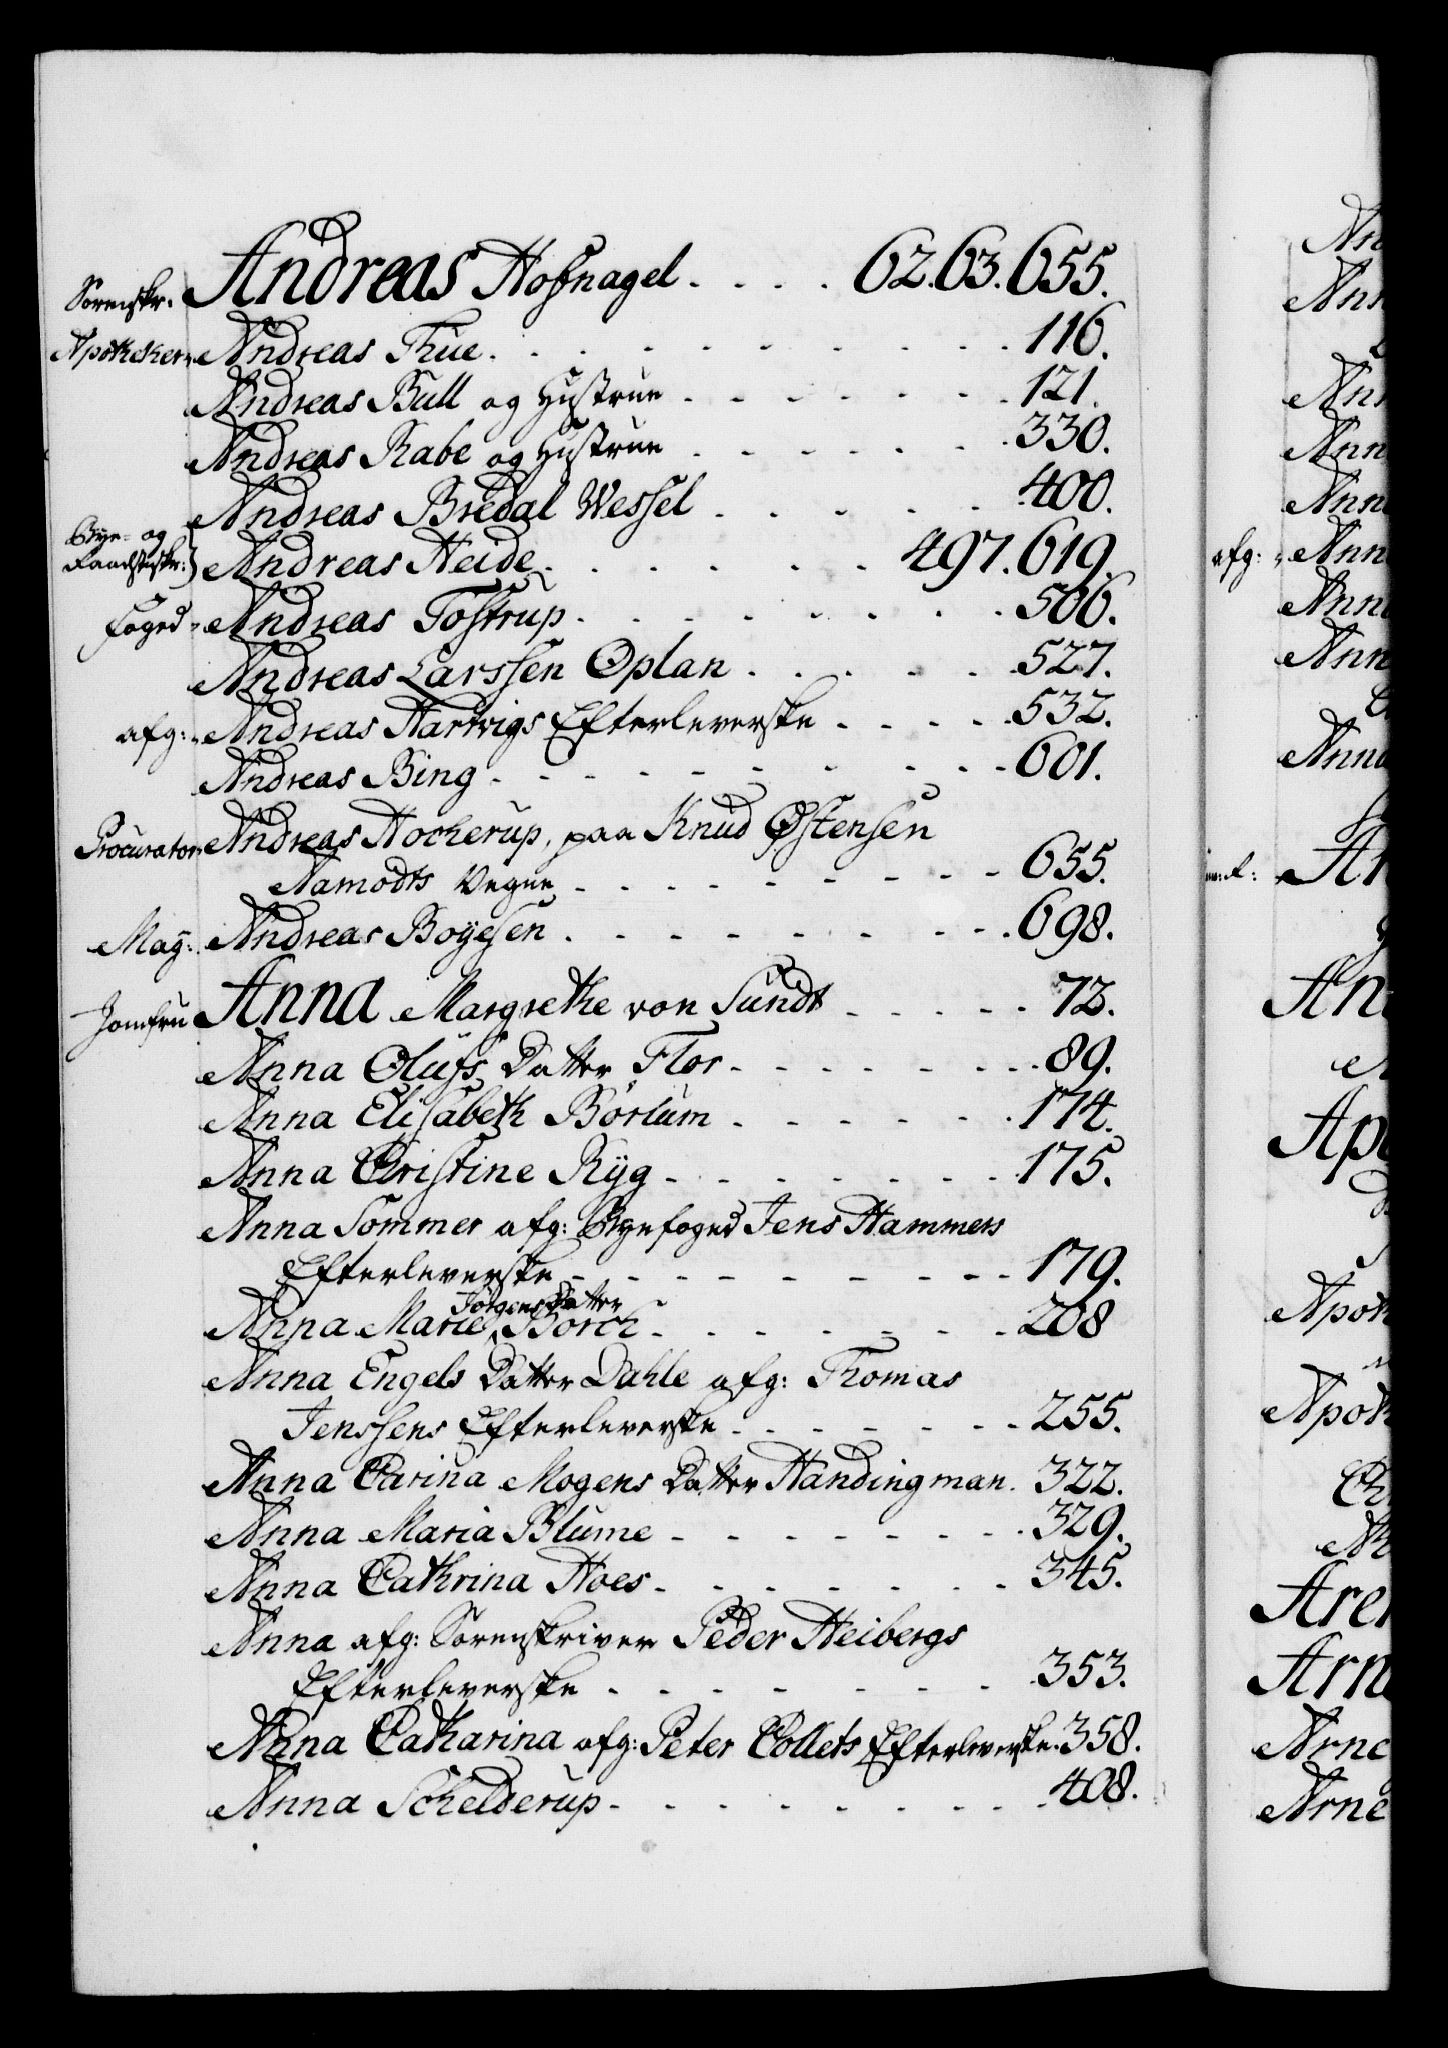 Sorenskr. Andreas Hofnagel. . . . 62.63.655.
Apotheker Andreas Thue. . . . . . . . . . 116.
Andreas Bull og Hustrue - - - - - - . 121.
Andreas Rabe og Hustrue - - - - - . 330.
Andreas Bredal Wessel . . . . . . 400.
Bye- og
Raadstuskr: } Andreas Heide . . . . . . 497.619.
Foged Andreas Tostrup. . . . . . . . . 506.
Andreas Larssen Oplan . . . . . 527.
afg: Andreas Hartvigs Efterleverske . . . . 532.
Andreas Bing - - - - - - - - - - 601.
Procurator Andreas Hockerup, paa Knud Østensen
Namodts Vegne - - - - - - - - 655.
Mag: Andreas Boyesen . . . . . . . . . 698.
Jomfru Anna Margrethe von Sundt - - - - - 72.
Anna Olufs Datter Flor - - - - - - - 89.
Anna Elisabeth Börlum - - - - - - 174.
Anna Christine Ryg - - - - - - - 175.
Anna Sommer afg: Byefoged Jens Hammers
Efterleverske - - - - - - - - - 179.
Jörgens Datter
Anna Marie Borch - - - - - - - 208
Anna Engels Datter Dahle afg: Thomas
Jenssens Efterleverske - - - - - - 255.
Anna Carina Mogens Datter Handingman. 322.
Anna Maria Blume - - - - - - - 329.
Anna Cathrina Hoes - - - - - - - 345.
Anna afg: Sorenskriver Peder Heibergs
Efterleverske . . . . . . . . 353.
Anna Catharina afg: Peter Collets Efterleverske. 358.
Anna Schelderup - - - - - - - - - 408.
Ann
afg: Ann
Ann
Ann
Anna
Apoth
Apoth
Arne
Arne